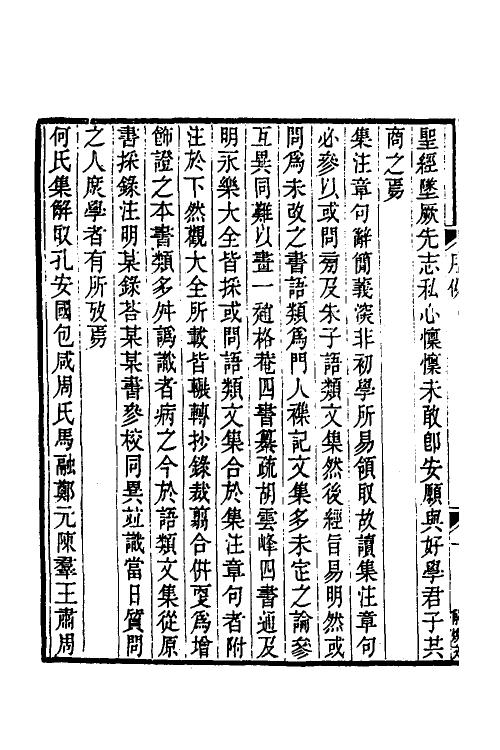 聖經墜厥先志私心懍懍未敢卽安願與好學君子共
商之焉
集注章句辭簡義深非初學所易領取故讀集注章句
必參以或問旁及朱子語類文集然後經旨易明然或
問爲未改之書語類爲門人襍記文集多未定之論參
互異同難以畫一趙格菴四書纂疏胡雲峰四書通及
明永樂大全皆採或問語類文集合於集注章句者附
注於下然觀大全所載皆輾轉抄錄裁翦合併憂爲增
飾證之本書類多舛譌識者病之今於語類文集從原
書採錄注明某錄荅某某書參校同異竝識當日質問
之人庶學者有所攷焉
何氏集解取孔安國包咸周氏馬融鄭元陳羣王肅周